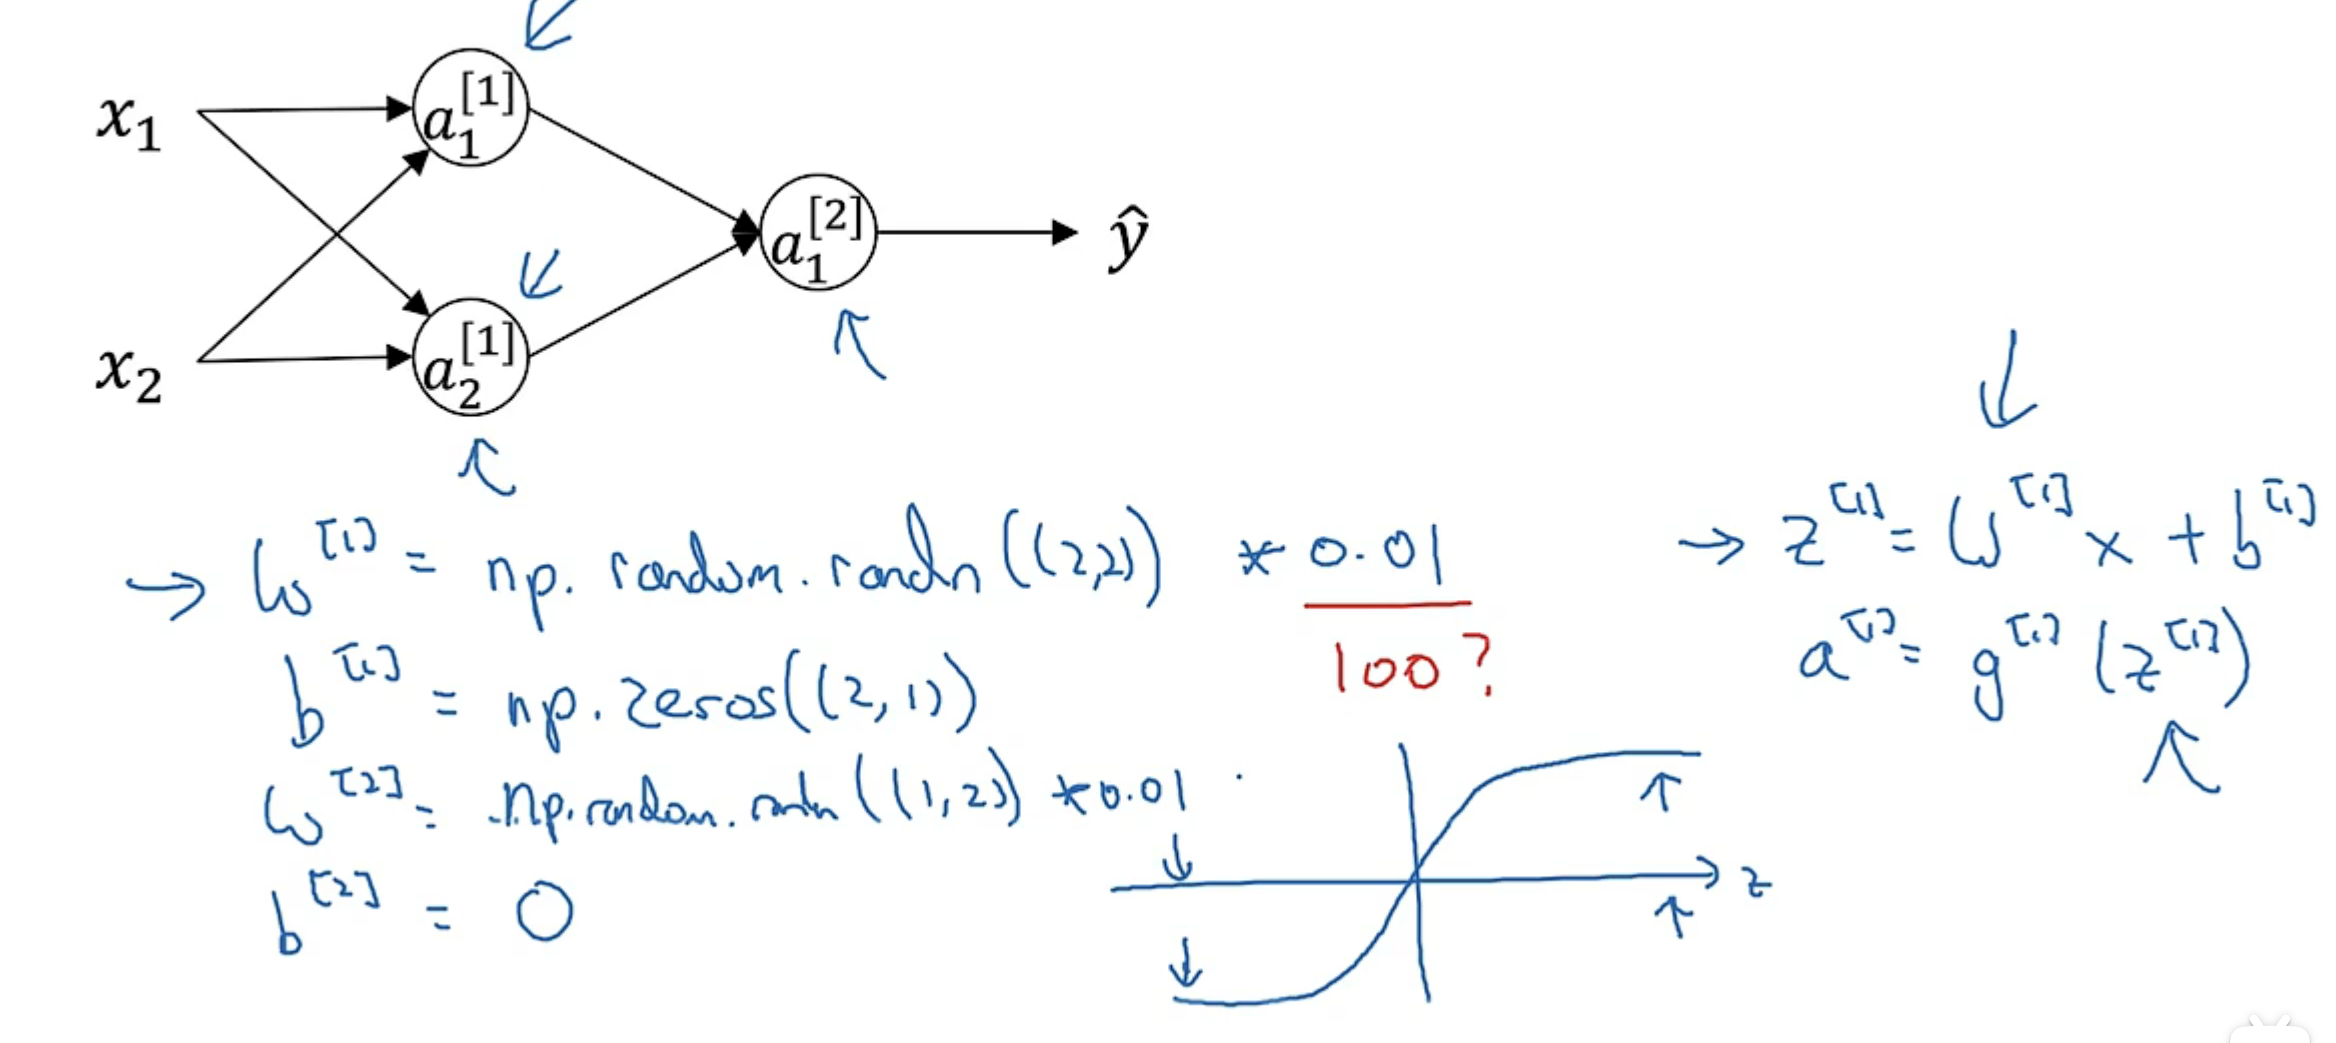 x₁
a₁^[1]
x₂
a₂^[1]
a₁^[2]
ŷ
→ W^[1] = np.random.randn((2,2)) * 0.01
100?
b^[1] = np.zeros((2,1))
W^[2] = np.random.randn((1,2)) * 0.01
b^[2] = 0
→ z^[1] = W^[1] x + b^[1]
a^[1] = g^[1] (z^[1])
z